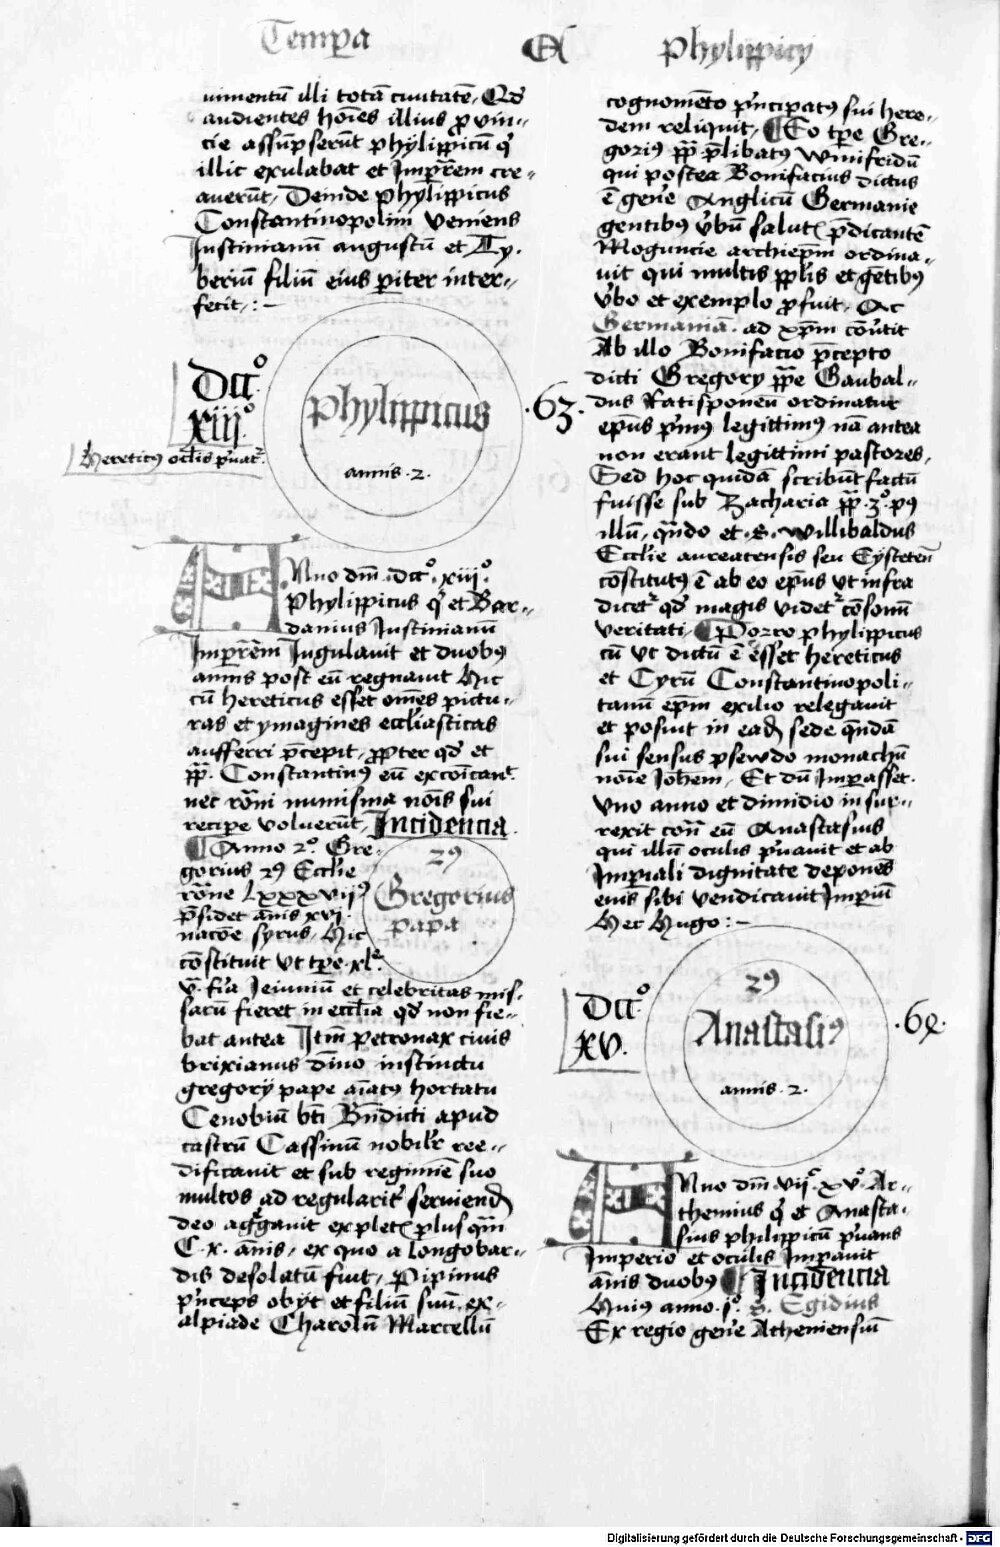 Tempa Et Phylippicy
uimentū illi totā ciuitatē, Qd
audientes hoīes illius ꝓ vin-
cie assūpserūt phylippicū qͥ
illic exulabat et Impr̄em cre-
auerūt, Deinde phylippicus
Constantinopolim veniens
Iustinianū augustū et Ty-
beriū filiū eius pariter inter-
fecit,:~
Dccͦ.
xiijͦ.
Phylippicus
annis .2.
.63.
Hereticꝰ oc̄lis pͥuatʳ.
ANno dm̄ .dccͦ. xiijͦ.
Phylippicus qͥ et Bar-
danius Iustinianū
Impr̄em Iugulauit et duobꝰ
annis post eū regnauit Hic
cū hereticus esset om̄es pictu-
ras et ymagines eccl̄iasticas
aufferri p̄cepit, ꝓpter qd et
pp̄. Constantinꝰ eū excōicaut.
nec rōni numisma noīs sui
recipe voluerūt, Incidencia.
Anno 2ͦ. Gre-
gorius 2ꝰ Eccl̄ie
rōne Lxxxvijꝰ
p̄sidet annis xvj.
nacōe syrus, Hic
cōstituit vt tp̄e .xlͤ.
2ꝰ
Gregorius
papa
v̄. fīa Ieiuniū et celebritas mis-
sarū fieret in eccl̄ia qd non fie-
bat antea Itm̄ petronax ciuis
brixianus diuīo instinctu
gregorij pape aīatꝰ hortatu
Cenobiū bt̄i Bn̄dicti apud
castrū Cassinū nobilr̄ ree-
dificauit et sub regimīe suo
multos ad regularitʳ seruiend
deo ag̅gauit expletꝭ plusqm̄
C.x. anīs, ex quo a Longobar-
dis desolatū fuit, Pipinus
pͥnceps obijt et filiū suū ex-
alpiade Charolū Marcellū
cognomēto pͥncipatꝰ sui here-
dem reliquit, Eo tp̄e Gre-
goriꝰ pp̄ p̄libatꝰ winifridū
qui postea Bonifacius dictus
ē gen̄e Anglicū Germanie
gentibꝰ v̄bū salutꝭ p̄dicantē
Moguncie archiep̄m ordina-
uit qui multis pp̄lis et gētibꝰ
v̄bo et exemplo ꝓfuit, Ac
Germaniā. ad xp̄m cōutit
Ab illo Bonifacio p̄cepto
dicti Gregory pp̄e Gaubal-
dus Ratisponēn ordinatur
ep̄us pͥmꝰ legittimꝰ nā antea
non erant legittimi pastores,
Sed hoc quidā scribūt factū
fuisse sub Zacharia pp̄ .3ͦ. pꝰ
illū, qn̄do et .S. willibaldus
Eccl̄ie aureatensis seu Eystetēn
cōstitutꝰ ē ab eo ep̄us vt infra
dicetʳ qd magis videtʳ cōsonū
veritati, Porro phylippicus
cū vt dictū ē esset hereticus
et Cyrū Constantinopoli-
tanū ep̄m exilio relegauit
et posuit in ead sede qn̄dā
sui sensus psewdo monachū
noīe Joh̄em, Et dū Impasset.
vno anno et dimidio insur-
rexit cōn̄ eū Anastasius
qui illū oculis pͥuauit et ab
Imperiali dignitate deponēs
eius sibi vendicauit Imperiū
Hec Hugo:~
Dccͦ.
xv.
Anastasiꝰ
annis .2.
.64.
ANno dm̄ .vijͨ. xvͦ. Ar-
themius qͥ et Anasta-
sius philippicū pͥuans
Imperio et oculis Imperauit
anīs duobꝰ Incidencia
Huiꝰ anno .jͦ. S. Egidius
Ex regio gen̄e Atheniensiū
Digitalisierung gefördert durch die Deutsche Forschungsgemeinschaft - DFG